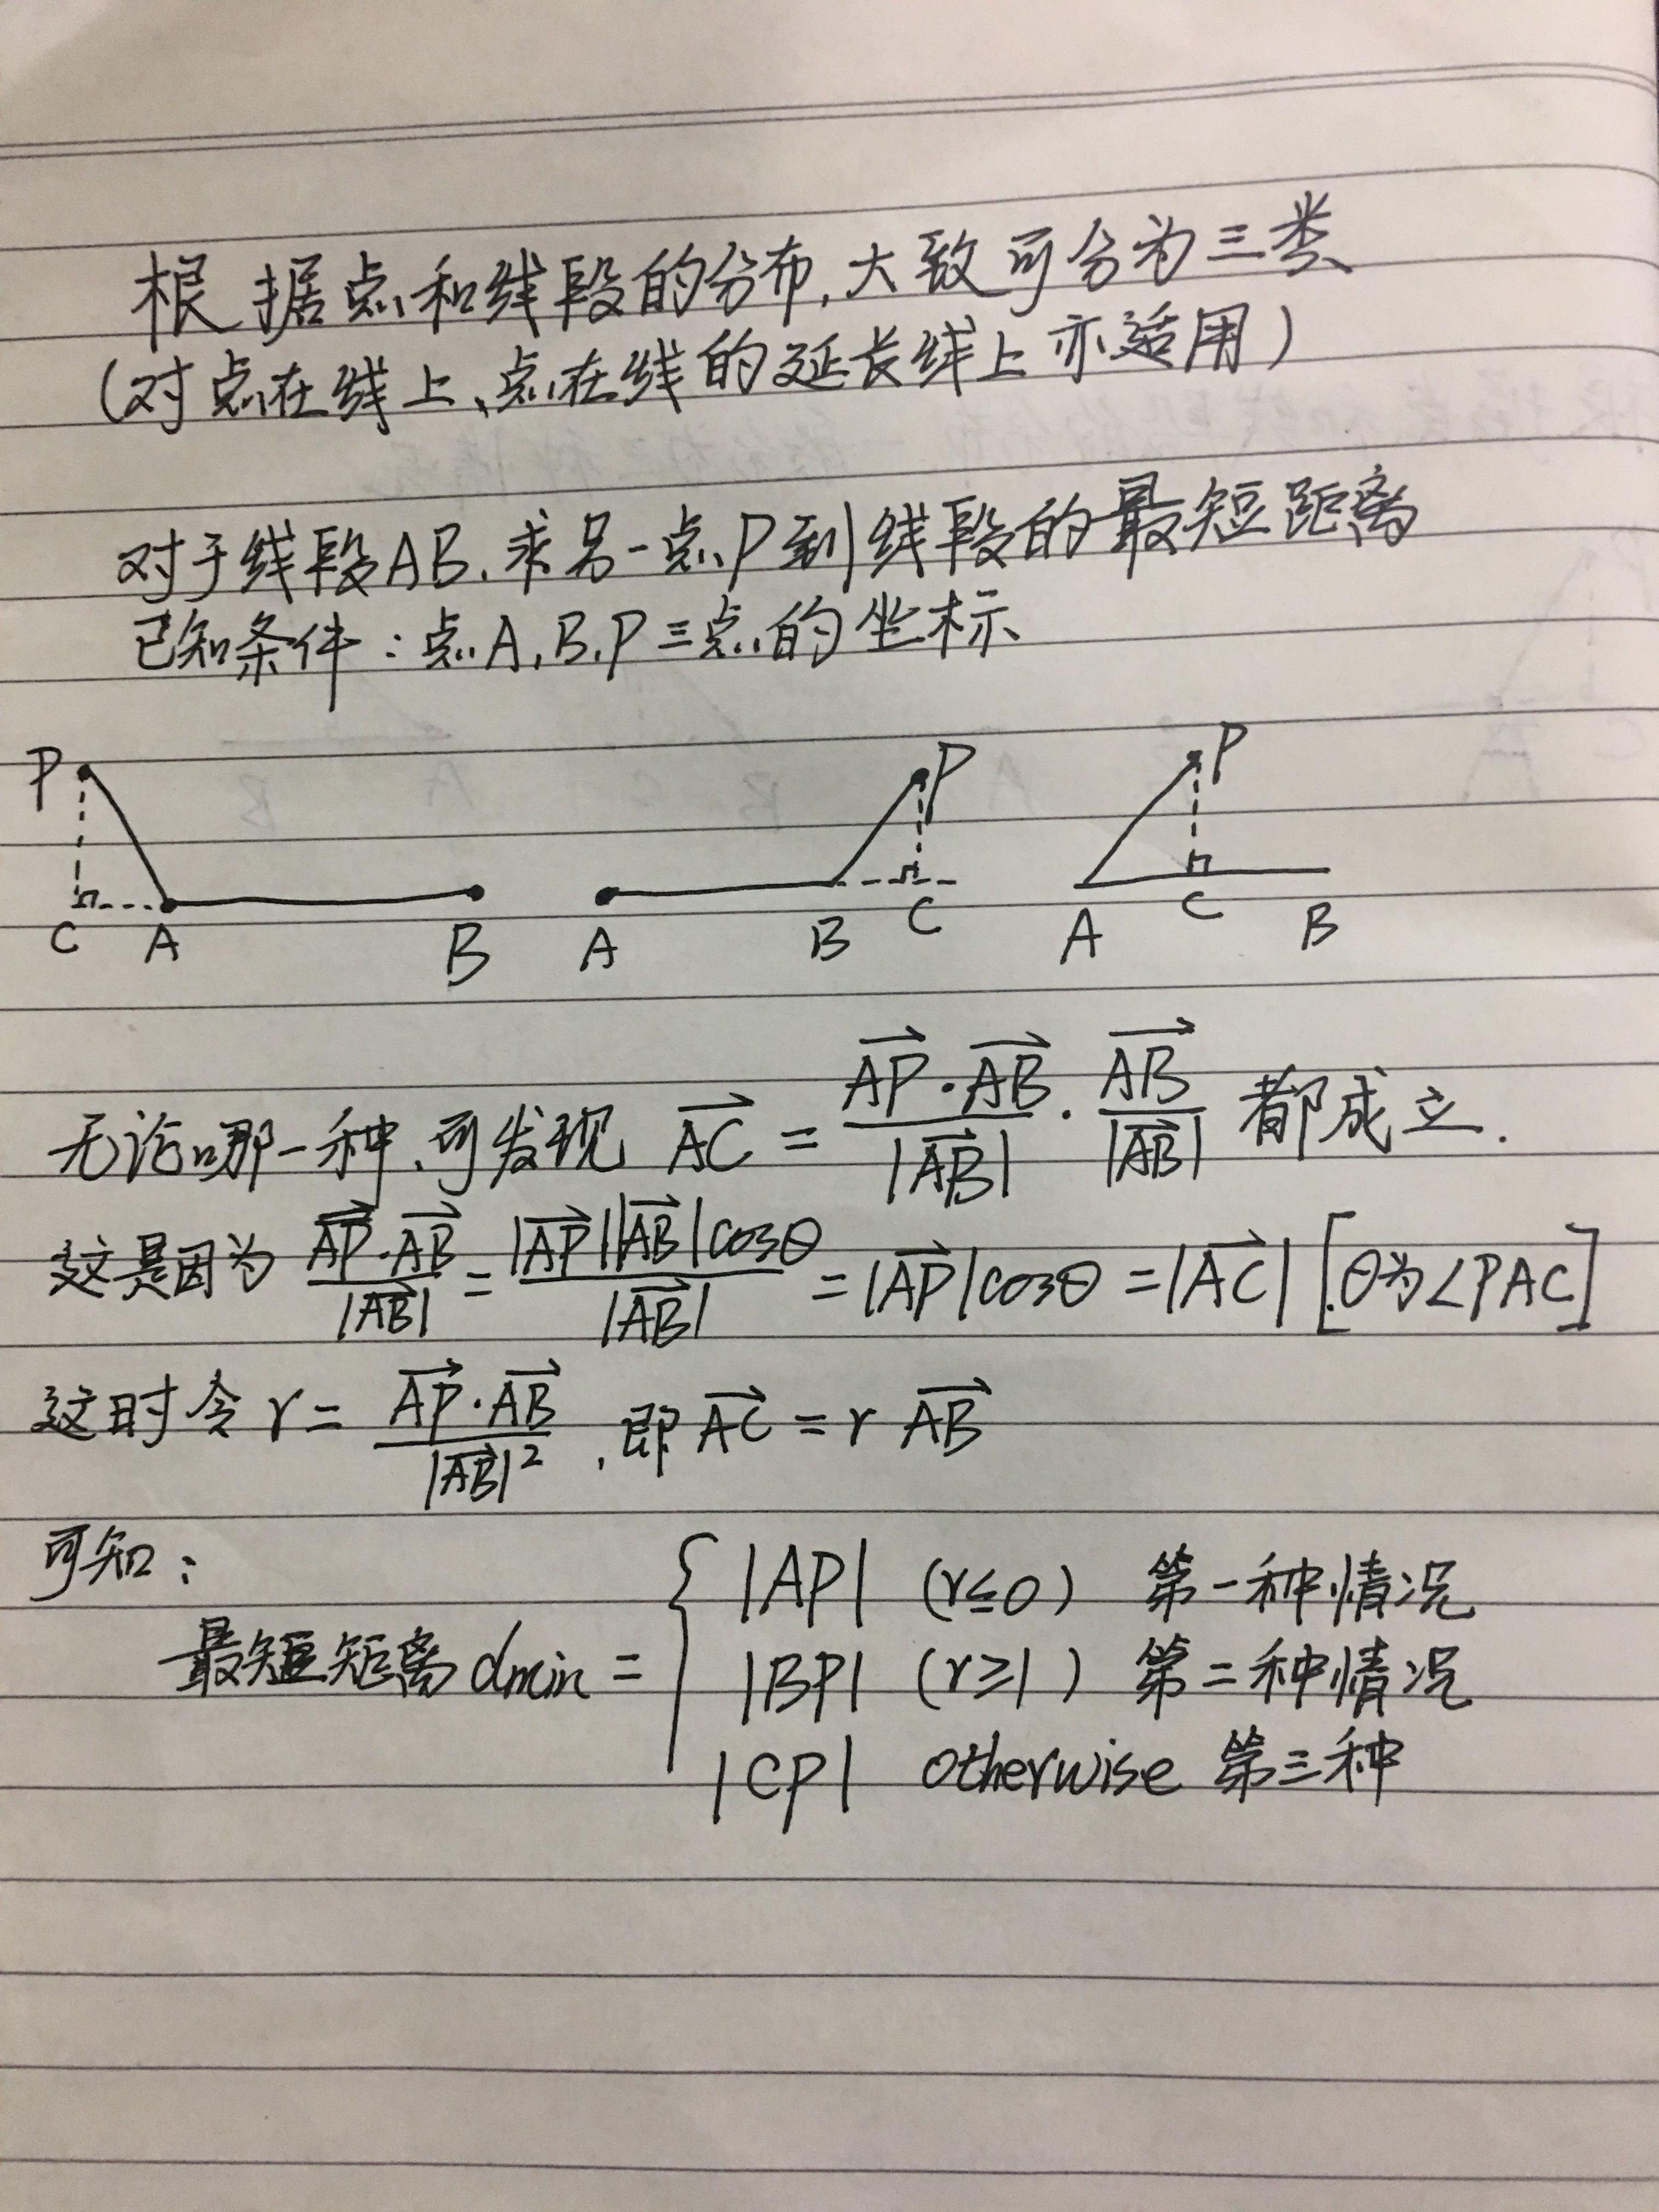 根据点和线段的分布,大致可分为三类
(对点在线上、点在线的延长线上亦适用)
对于线段AB,求另一点P到线段的最短距离
已知条件:点A,B,P三点的坐标
P C A B A B C P A C B P
无论哪一种,可发现 $\overrightarrow{AC} = \frac{\overrightarrow{AP}\cdot\overrightarrow{AB}}{|\overrightarrow{AB}|}\cdot\frac{\overrightarrow{AB}}{|\overrightarrow{AB}|}$ 都成立.
这是因为 $\frac{\overrightarrow{AP}\cdot\overrightarrow{AB}}{|\overrightarrow{AB}|} = \frac{|\overrightarrow{AP}||\overrightarrow{AB}|\cos\theta}{|\overrightarrow{AB}|} = |\overrightarrow{AP}|\cos\theta = |\overrightarrow{AC}|$ [θ为∠PAC]
这时令 $r = \frac{\overrightarrow{AP}\cdot\overrightarrow{AB}}{|\overrightarrow{AB}|^2}$,即 $\overrightarrow{AC} = r\overrightarrow{AB}$
可知:
最短距离 dmin = {
|AP| (r≤0) 第一种情况
|BP| (r≥1) 第二种情况
|CP| otherwise 第三种